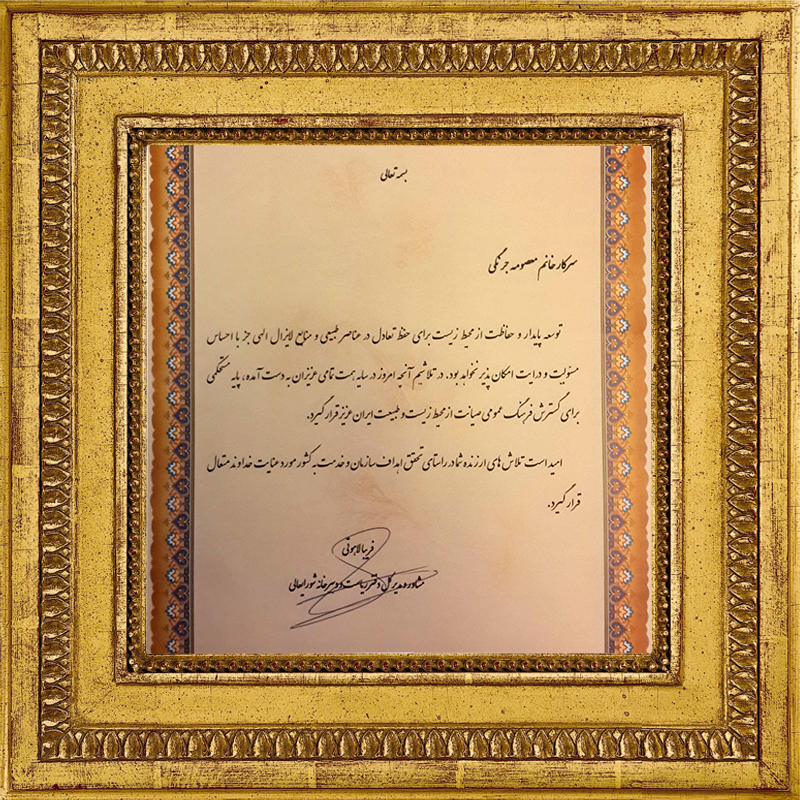 بسمه تعالی
سرکار خانم معصومه جرنگی
توسعه پایدار و حفاظت از محیط زیست برای حفظ تعادل در عناصر طبیعی و منابع لایزال الهی جز با احساس
مسئولیت و درایت امکان پذیر نخواهد بود، در تلاشیم آنچه امروز در سایه همت تمامی عزیزان به دست آمده، پایه مستحکمی
برای گسترش فرهنگ عمومی صیانت از محیط زیست و طبیعت ایران عزیز قرار گیرد.
امید است تلاش های ارزنده شما در راستای تحقق اهداف سازمان و خدمت به کشور مورد عنایت خداوند متعال
قرار گیرد.
فریبا لاهوتی
مشاور و مدیر کل دفتر ریاست و دبیرخانه شورایعالی